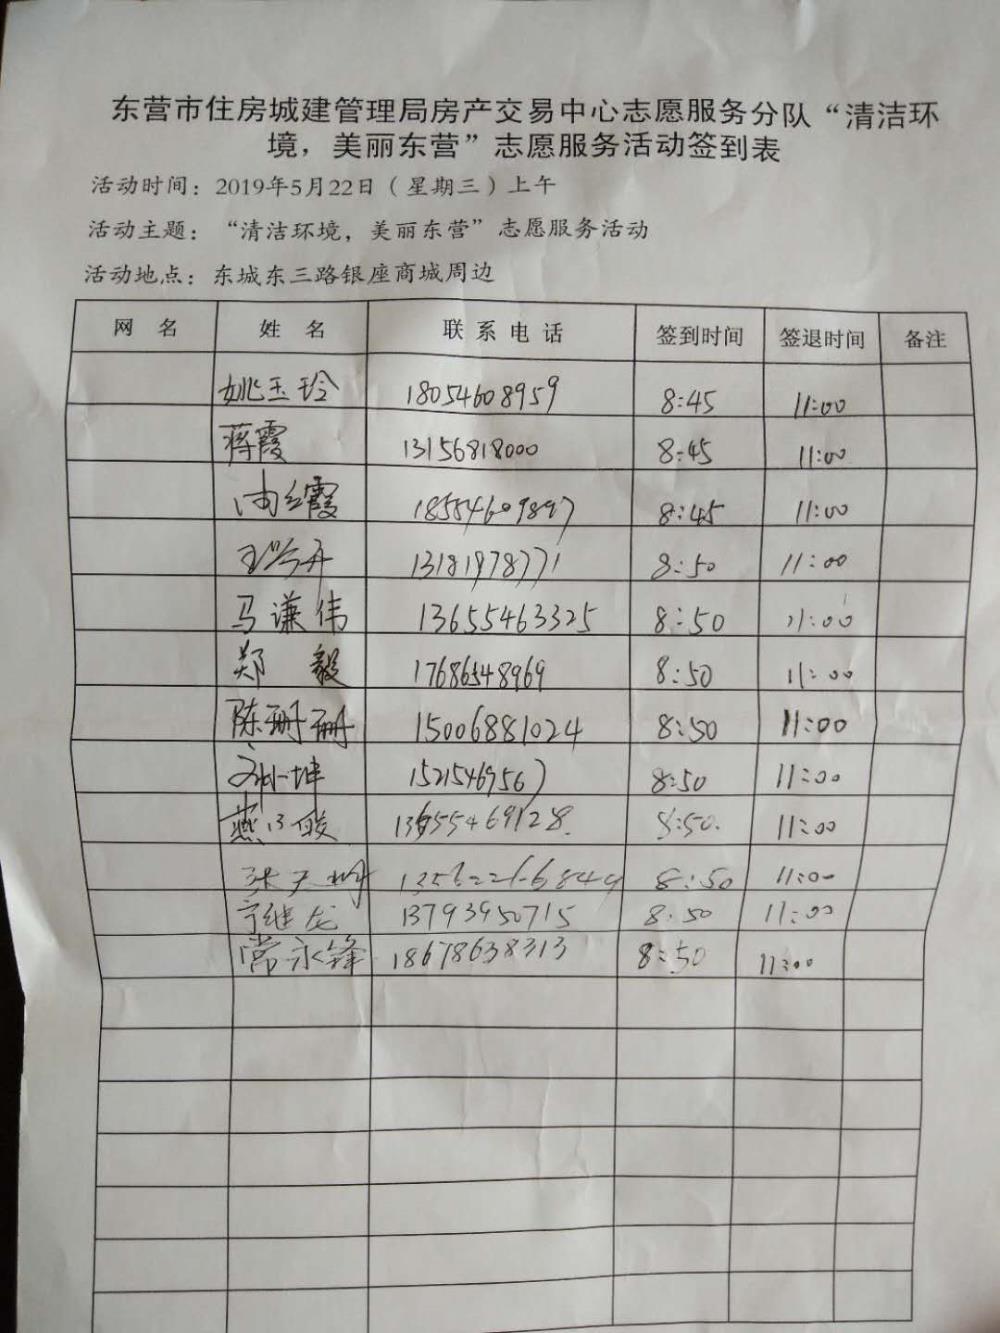 东营市住房城建管理局房产交易中心志愿服务分队“清洁环
境，美丽东营”志愿服务活动签到表
活动时间：2019年5月22日（星期三）上午
活动主题：“清洁环境，美丽东营”志愿服务活动
活动地点：东城东三路银座商城周边
网 名 姓 名 联系电话 签到时间 签退时间 备注
姚玉玲 18054608959 8:45 11:00
蒋霞 13156818000 8:45 11:00
红霞 18554609897 8:45 11:00
13181978771 8:50 11:00
马谦伟 13655463325 8:50 11:00
郑毅 17686548969 8:50 11:00
陈珊珊 15006881024 8:50 11:00
刘坤 15215469567 8:50 11:00
燕 13655469128 8:50. 11:00
张天 8:50 11:00
宁继龙 13793950715 8:50 11:00
常永锋 18678638313 8:50 11:00